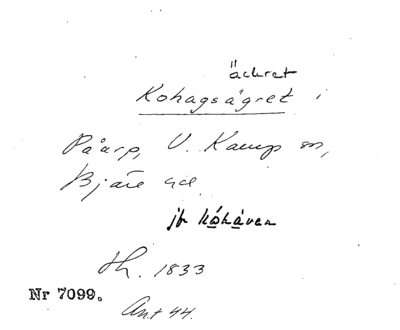 äckret
Kohagsägret i
Påarp, V. Karup sn,
Bjäre hd.
jfr kóháven
Hh. 1833
Nr 7099.
Ant 44.